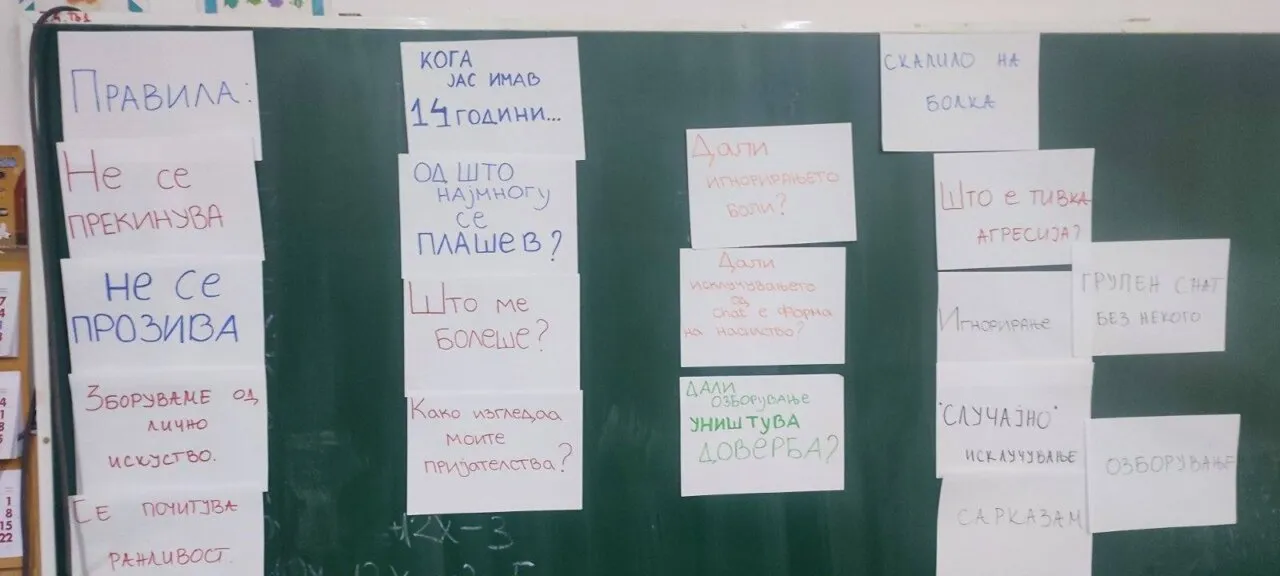 ПРАВИЛА:
НЕ СЕ
ПРЕКИНУВА
НЕ СЕ
ПРОЗИВА
ЗБОРУВАМЕ ОД
ЛИЧНО
ИСКУСТВО.
СЕ ПОЧИТУВА
РАНЛИВОСТ.
КОГА
ЈАС ИМАВ
14 ГОДИНИ...
ОД ШТО
НАЈМНОГУ
СЕ
ПЛАШЕВ?
ШТО МЕ
БОЛЕШЕ?
КАКО ИЗГЛЕДАА
МОИТЕ
ПРИЈАТЕЛСТВА?
12X-3
ДАЛИ
ИГНОРИРАЊЕТО
БОЛИ?
ДАЛИ
ИСКЛУЧУВАЊЕТО
ОД
CHAT Е ФОРМА
НА НАСИЛСТВО?
ДАЛИ
ОЗБОРУВАЊЕ
УНИШТУВА
ДОВЕРБА?
СКАЛИЛО НА
БОЛКА
ШТО Е ТИВКА
АГРЕСИЈА?
ИГНОРИРАЊЕ
ГРУПЕН CHAT
БЕЗ НЕКОГО
"СЛУЧАЈНО"
ИСКЛУЧУВАЊЕ
ОЗБОРУВАЊЕ
САРКАЗАМ
1
8
15
22